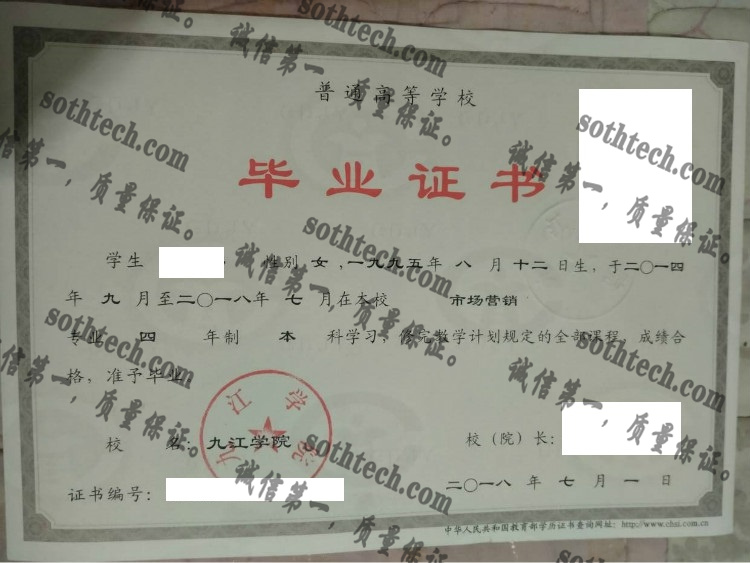 普通高等学校
毕业证书
学生 性别 女 ,一九九五年 八 月 十二 日生，于二〇一四
年 九 月至二〇一八年 七 月在本校 市场营销
专业 四 年制 本 科学习，修完教学计划规定的全部课程，成绩合
格，准予毕业。
校 名：九江学院
九江学院
校（院）长：
证书编号：
二〇一八 年 七 月 一 日
中华人民共和国教育部学历证书查询网址：http://www.chsi.com.cn
sothtech.com
诚信第一，质量保证。
sothtech.com
诚信第一，质量保证。
sothtech.com
诚信第一，质量保证。
sothtech.com
诚信第一，质量保证。
sothtech.com
诚信第一，质量保证。
sothtech.com
诚信第一，质量保证。
sothtech.com
诚信第一，质量保证。
sothtech.com
诚信第一，质量保证。
sothtech.com
sothtech.com